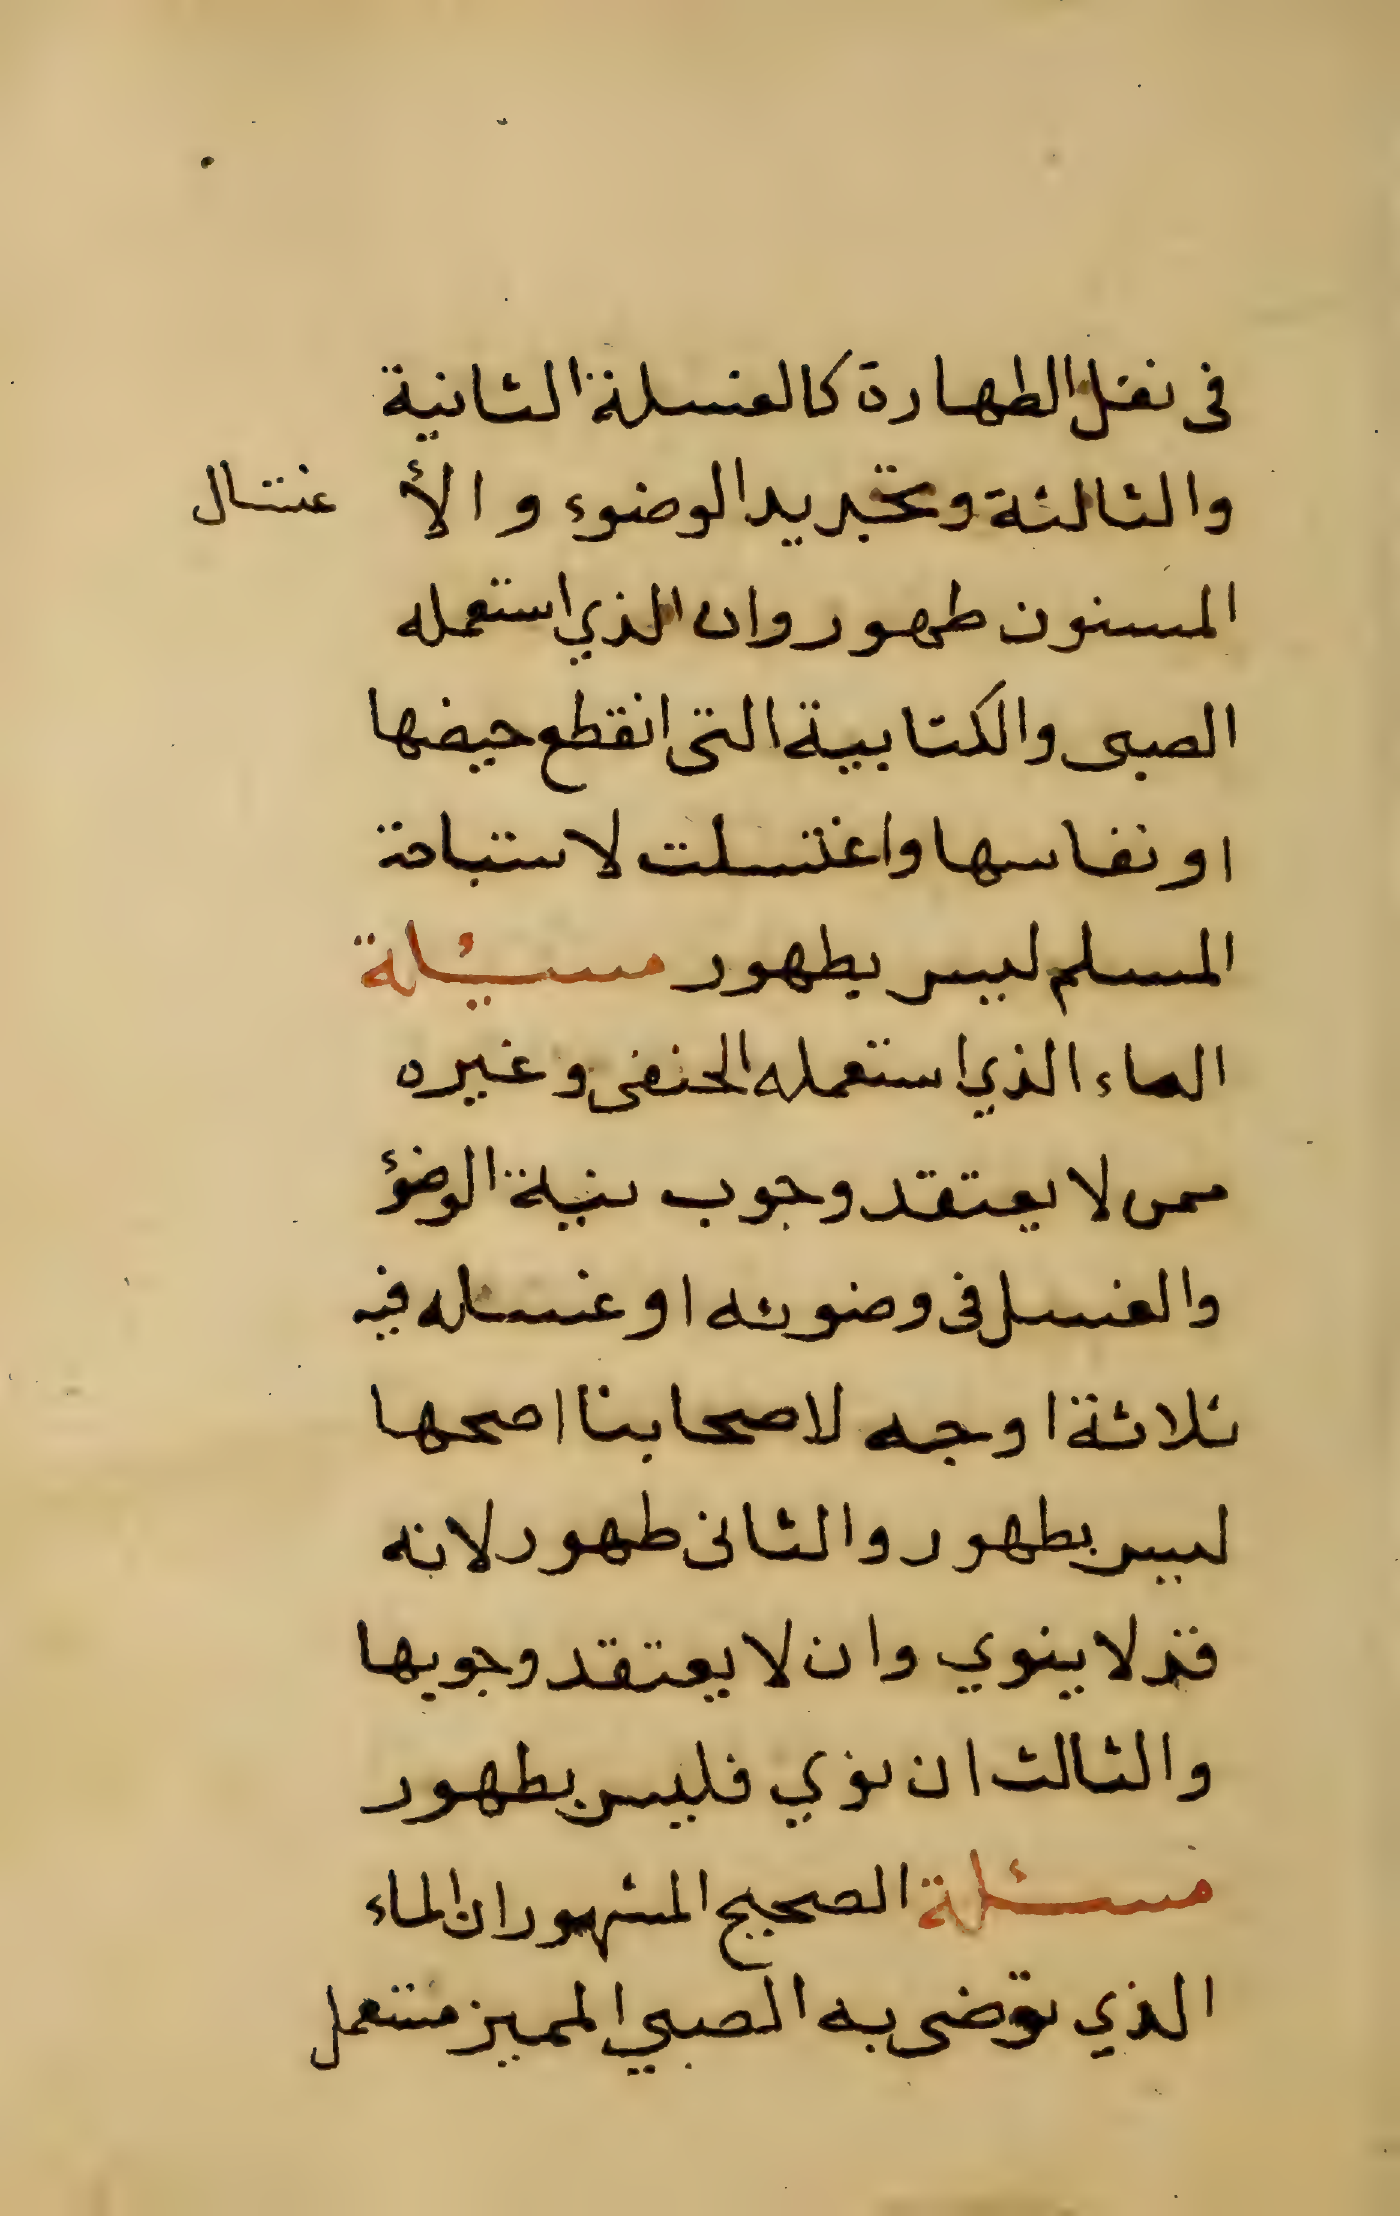 فى نفل الطهارة كالغسلة الثانية
والثالثة وتجديد الوضوء والأ غتسال
المسنون طهور وان الذي استعمله
الصبى والكتابية التى انقطع حيضها
او نفاسها واغتسلت لاستباحة
المسلم ليس بطهور مسيئلة
الماء الذي استعمله الحنفى وغيره
ممن لا يعتقد وجوب نية الوضؤ
والغسل فى وضوئه او غسله فيه
ثلاثة اوجه لاصحابنا اصحها
ليس بطهور والثانى طهور لانه
قد لا ينوي وان لا يعتقد وجوبها
والثالث ان نوي فليس بطهور
مسئلة الصحيح المشهور ان الماء
الذي توضى به الصبي المميز مستعمل